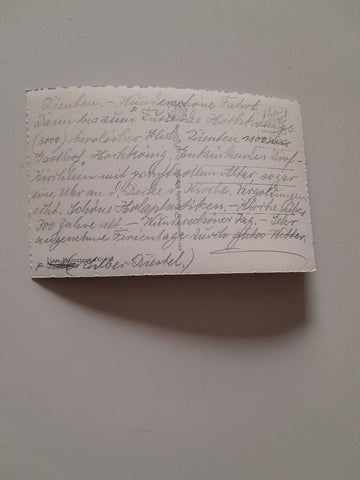 Dienten. – Wunderschöne Fahrt
Dann bis zum Fusse des Hochkönigs
(3000) herrlicher Blick Dienten
Gasthof, Hochkönig, Dorf-
Kirchlein mit Altar sogar
eine Uhr an d. Decke d. Kirche. Vergoldungen
echt. Schöne Holzplastiken. – Kirche über
300 Jahre alt. – Wunderschöner Tag. – Sehr
angenehme Ferientage durch gutes Wetter.
(Silber-Distel)